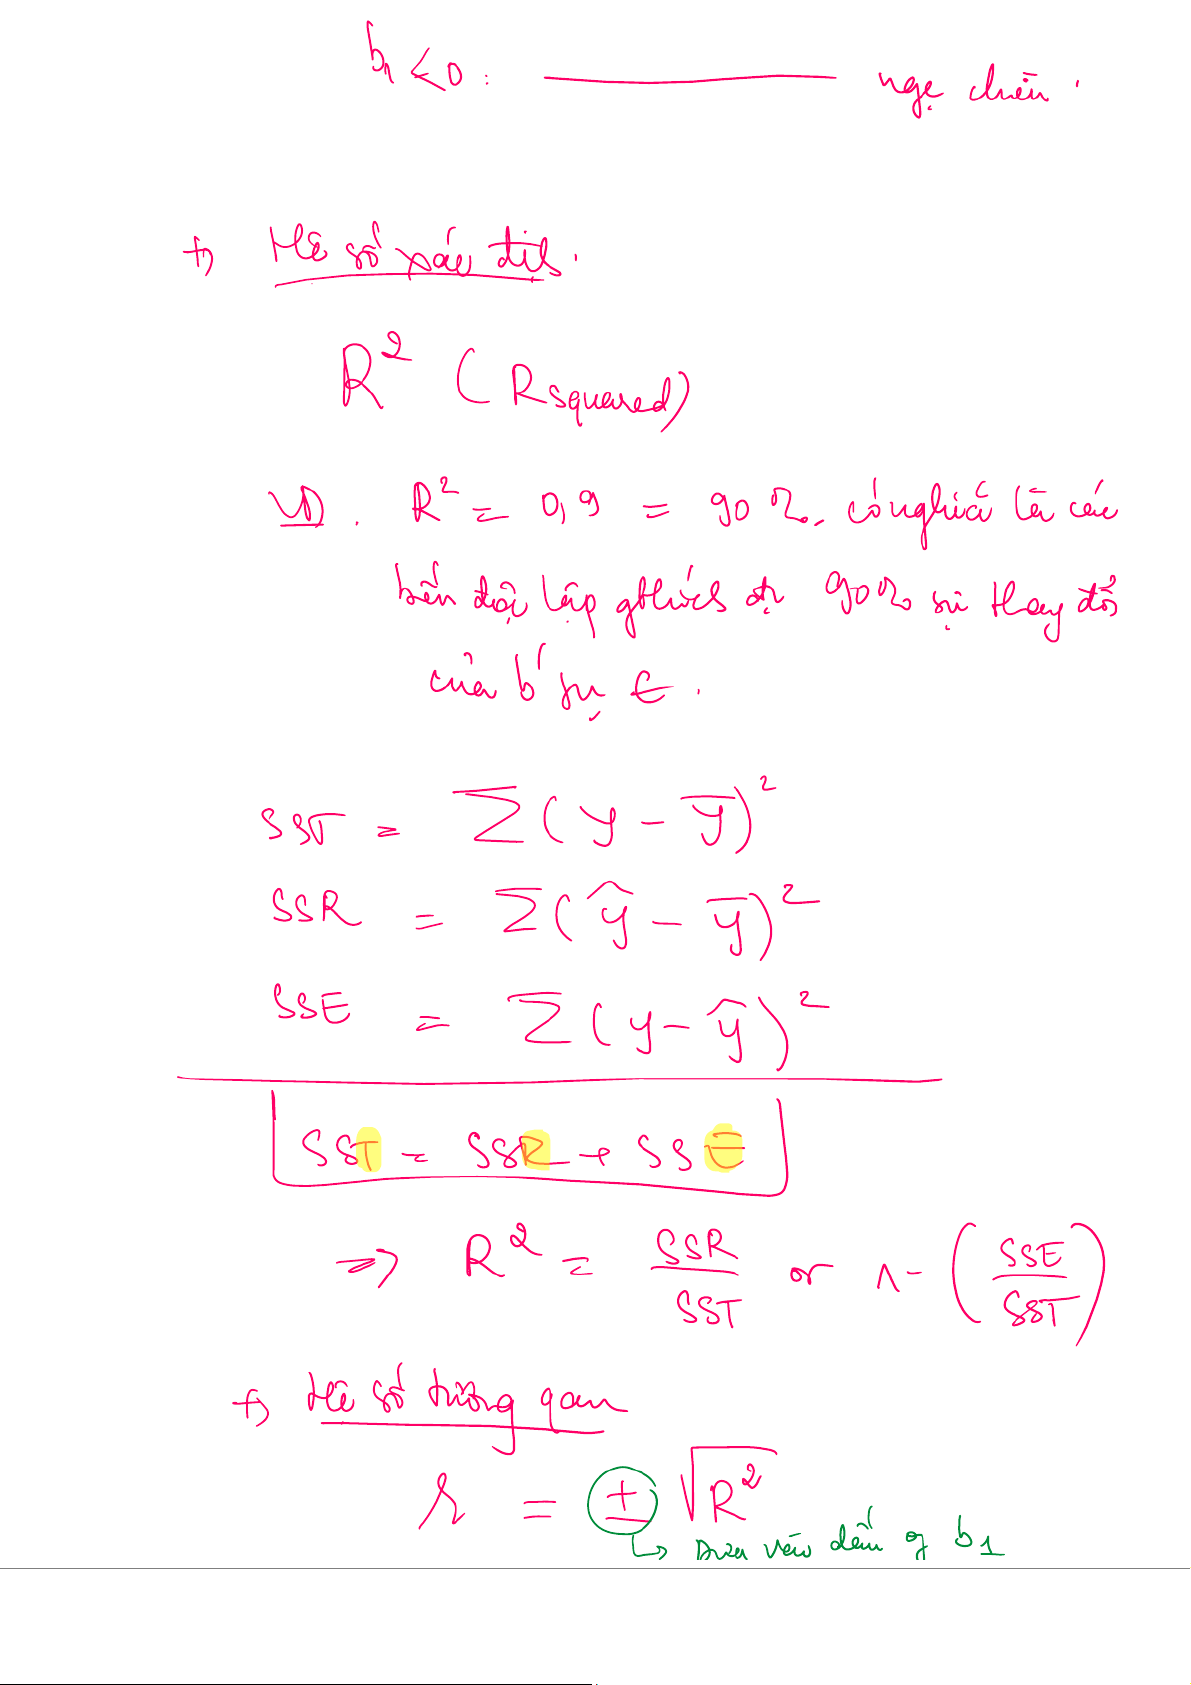 b₁ < 0 : ———— ngc chiều .
+) Hệ số xác định.
R² ( R squared)
VD . R² = 0,9 = 90%. có nghĩa là các
biến độc lập gthích đc 90% sự thay đổi
của b' phụ t .
SST = Σ(y - ȳ)²
SSR = Σ(ŷ - ȳ)²
SSE = Σ(y - ŷ)²
SST = SSR + SSE
=> R² = SSR/SST or 1 - (SSE/SST)
+) Hệ số tương quan
r = ± √R²
↳ Dựa vào dấu of b1